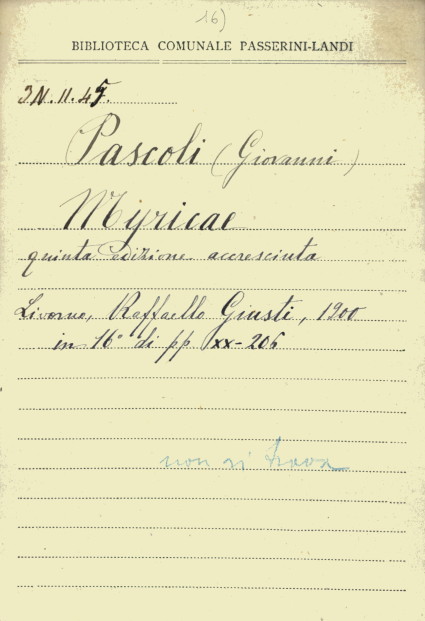 16)
BIBLIOTECA COMUNALE PASSERINI-LANDI
3N.II.45.
Pascoli (Giovanni)
Myricae
quinta edizione accresciuta
Livorno, Raffaello Giusti, 1900
in 16° di pp xx-206
non si trova